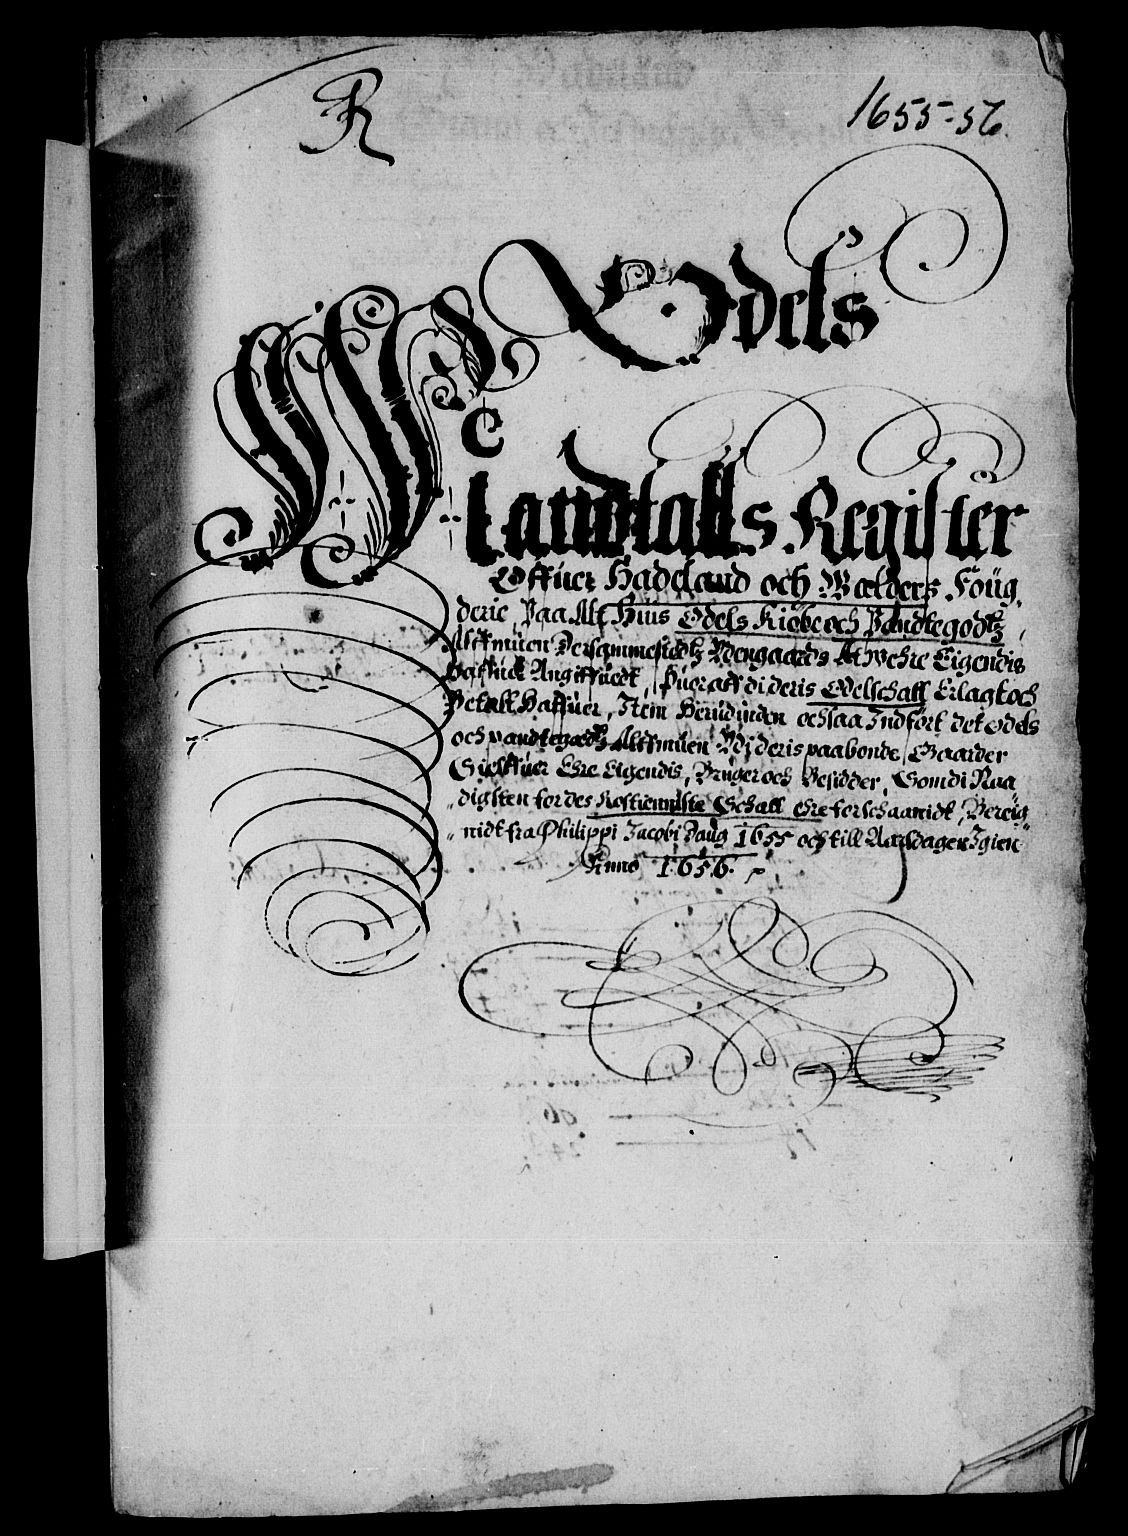 R
1655-56.
Odels
Mandtalls Register
Offuer Hadeland och Walders Foug
derie, Paa Alt Huis Odels Kiøbe och Pandtegodtz,
Allmuen Udengaards At wehre Eigendis
Haffuer Angiffuedt, Huoraff di deris Odelschatt Erlagt och
Betalt Haffuer, Item Herudinden och saa Indført det Odels
och pandtegodtz Allmuen Udj deris paabonde Gaarder
Sielffuer Ehre Eigendis, Bruger och Besidder, Som di Naa
digsten for des Kostiennste Schatt ehre forschaanidt, Bereig
nidt fra Philippi Jacobi Daug 1655 och till Aarsdagen Igien
Anno 1656.